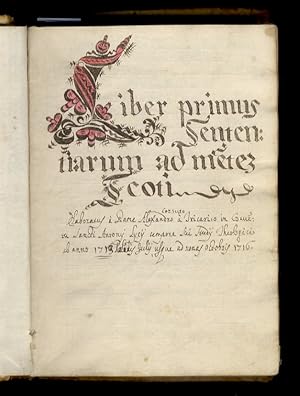 Liber primus
Senten-
tiarum ad mẽtez
Scoti
Elaboratus a Patre Alexandro a Tricarico in Conu:
tu Sancti Antonij Lycij
ab anno 171 Julij usque ad nonas Octobris 1716.